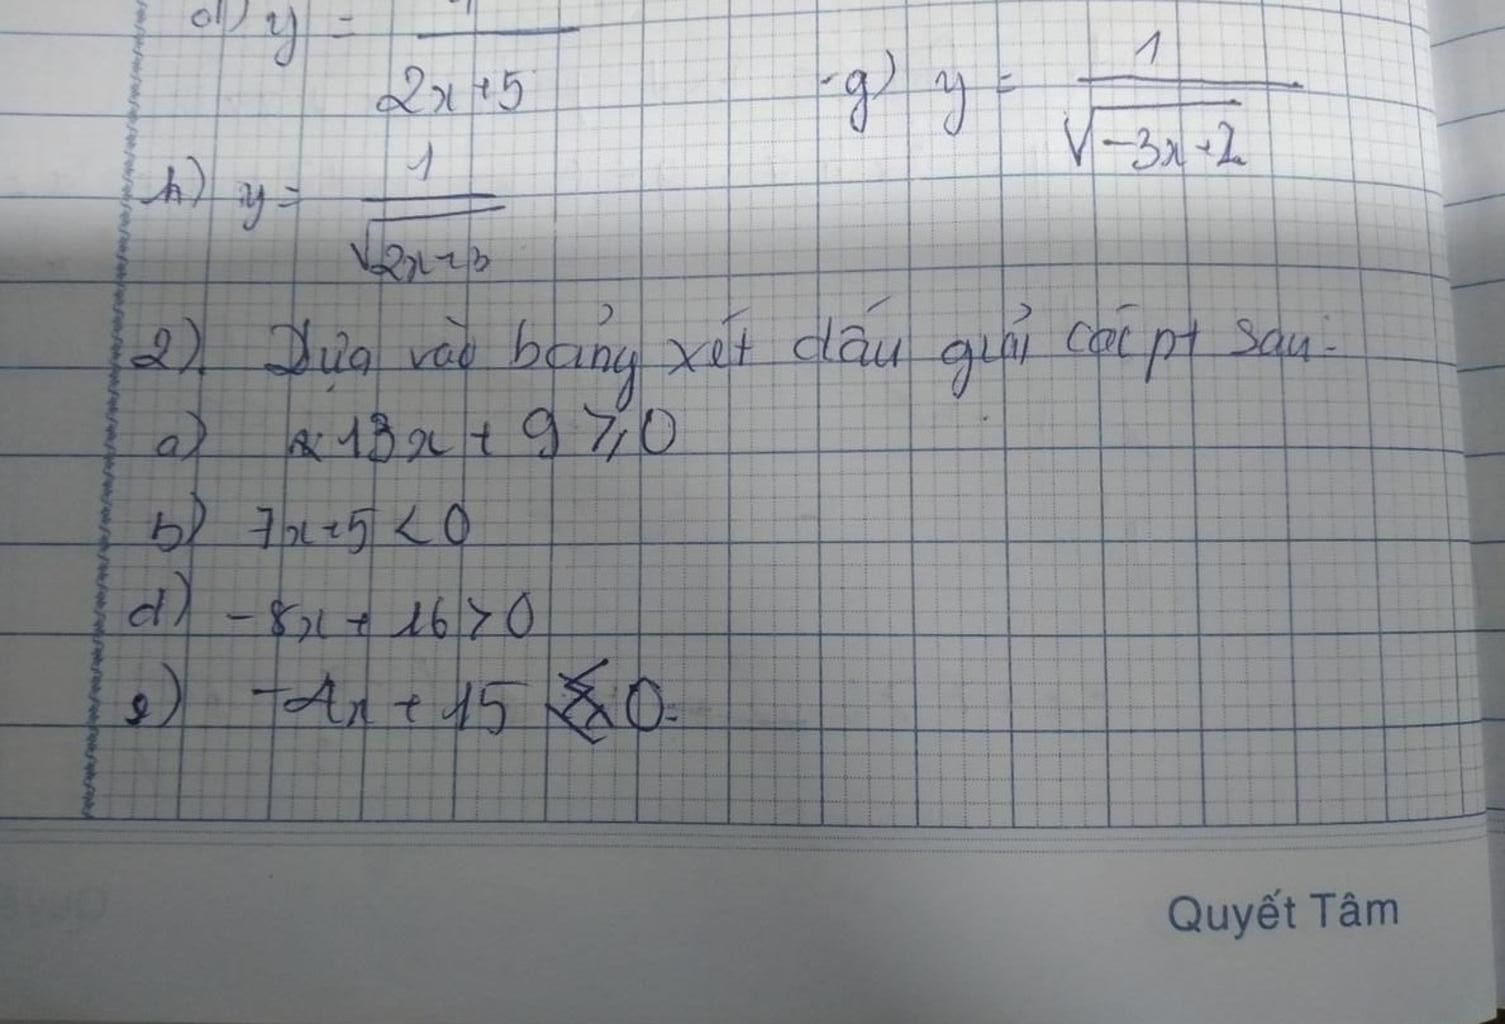 d) y = 
2x+5
g) y = 1/√(-3x+2)
h) y = 1/√(2x+3)
2) Dựa vào bảng xét dấu giải các pt sau:
a) 13x + 9 ⩾ 0
b) 7x+5 < 0
d) -8x + 16 > 0
e) -4x + 15 ⩽ 0
Quyết Tâm